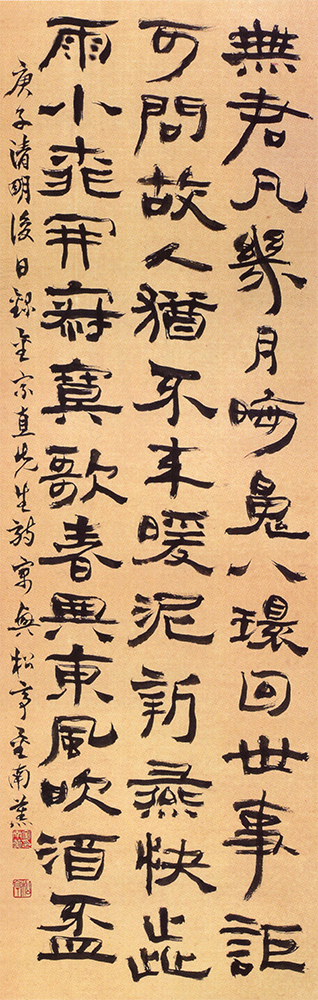 無君凡幾月晦八環回世事詎
可問故人猶不來暖泥新燕快
雨小桃開寂寞歌春興東風吹酒盃
庚子清明後日錄金宗直先生詩寓興松亭金南